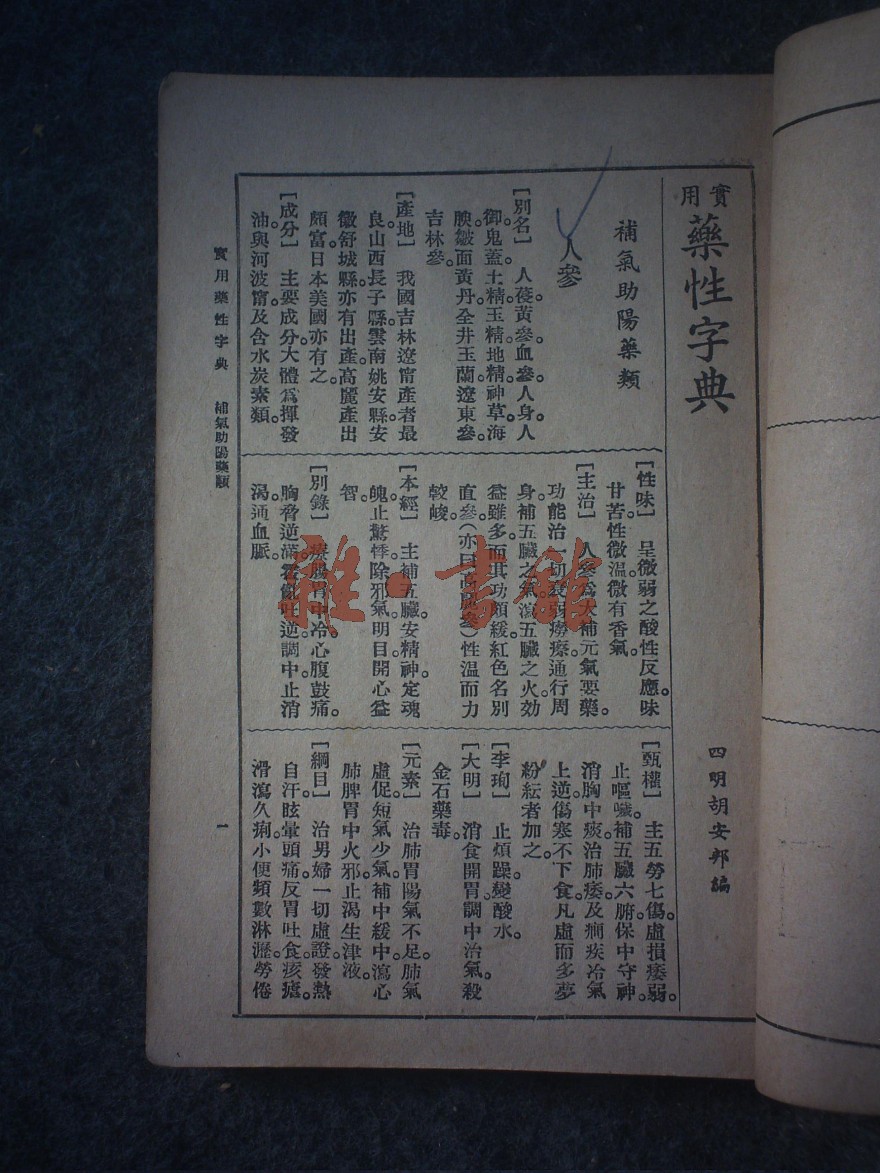 實用藥性字典
四明胡安邦編
補氣助陽藥類
人參
［別名］　人薓。黃參。血參。人身。人
御。鬼蓋。土精。玉精。地精。神草。海
腴。皺面。黃丹。全井玉蘭。遼東參。
吉林參。
［產地］　我國吉林遼甯產者最
良。山西長子縣雲南姚安縣安
徽舒城縣亦有出產。高麗產出
頗富。日本美國亦有之。
［成分］　主要成分大體爲揮發
油與河波甯及含水炭素類。
［性味］　呈微弱之酸性反應。味
甘苦。性微溫。微有香氣。
［主治］　人參爲大補元氣要藥
功能治一切衰弱癆瘵。通行周
身。補五臟之氣。瀉五臟之火。効
益雖多。而其功頗緩。紅色名別
直參（亦曰高麗參）性溫而力
較峻。
［本經］　主補五臟。安精神。定魂
魄。止驚悸。除邪氣。明目開心益
智。
［別錄］　療腸胃中冷。心腹鼓痛。
胸脅逆滿。霍亂吐逆。調中止消
渴。通血脈。
［甄權］　主五勞七傷。虛損痿弱。
止嘔噦。補五臟六腑。保中守神
消胸中痰。治肺痿。及癇疾冷氣
上逆。傷寒不下食。凡虛而多夢
紛紜者加之。
［李珣］　止煩躁。變酸水。
［大明］　消食開胃。調中治氣。殺
金石藥毒。
［元素］　治肺胃陽氣不足。肺氣
虛促。短氣少氣。補中緩中。瀉心
肺脾胃中火邪。止渴生津液。
［綱目］　治男婦一切虛證。發熱
自汗。眩暈頭痛。反胃吐食。痎瘧。
滑瀉久痢。小便頻數淋瀝。勞倦
實用藥性字典　補氣助陽藥類
一
雜·書館